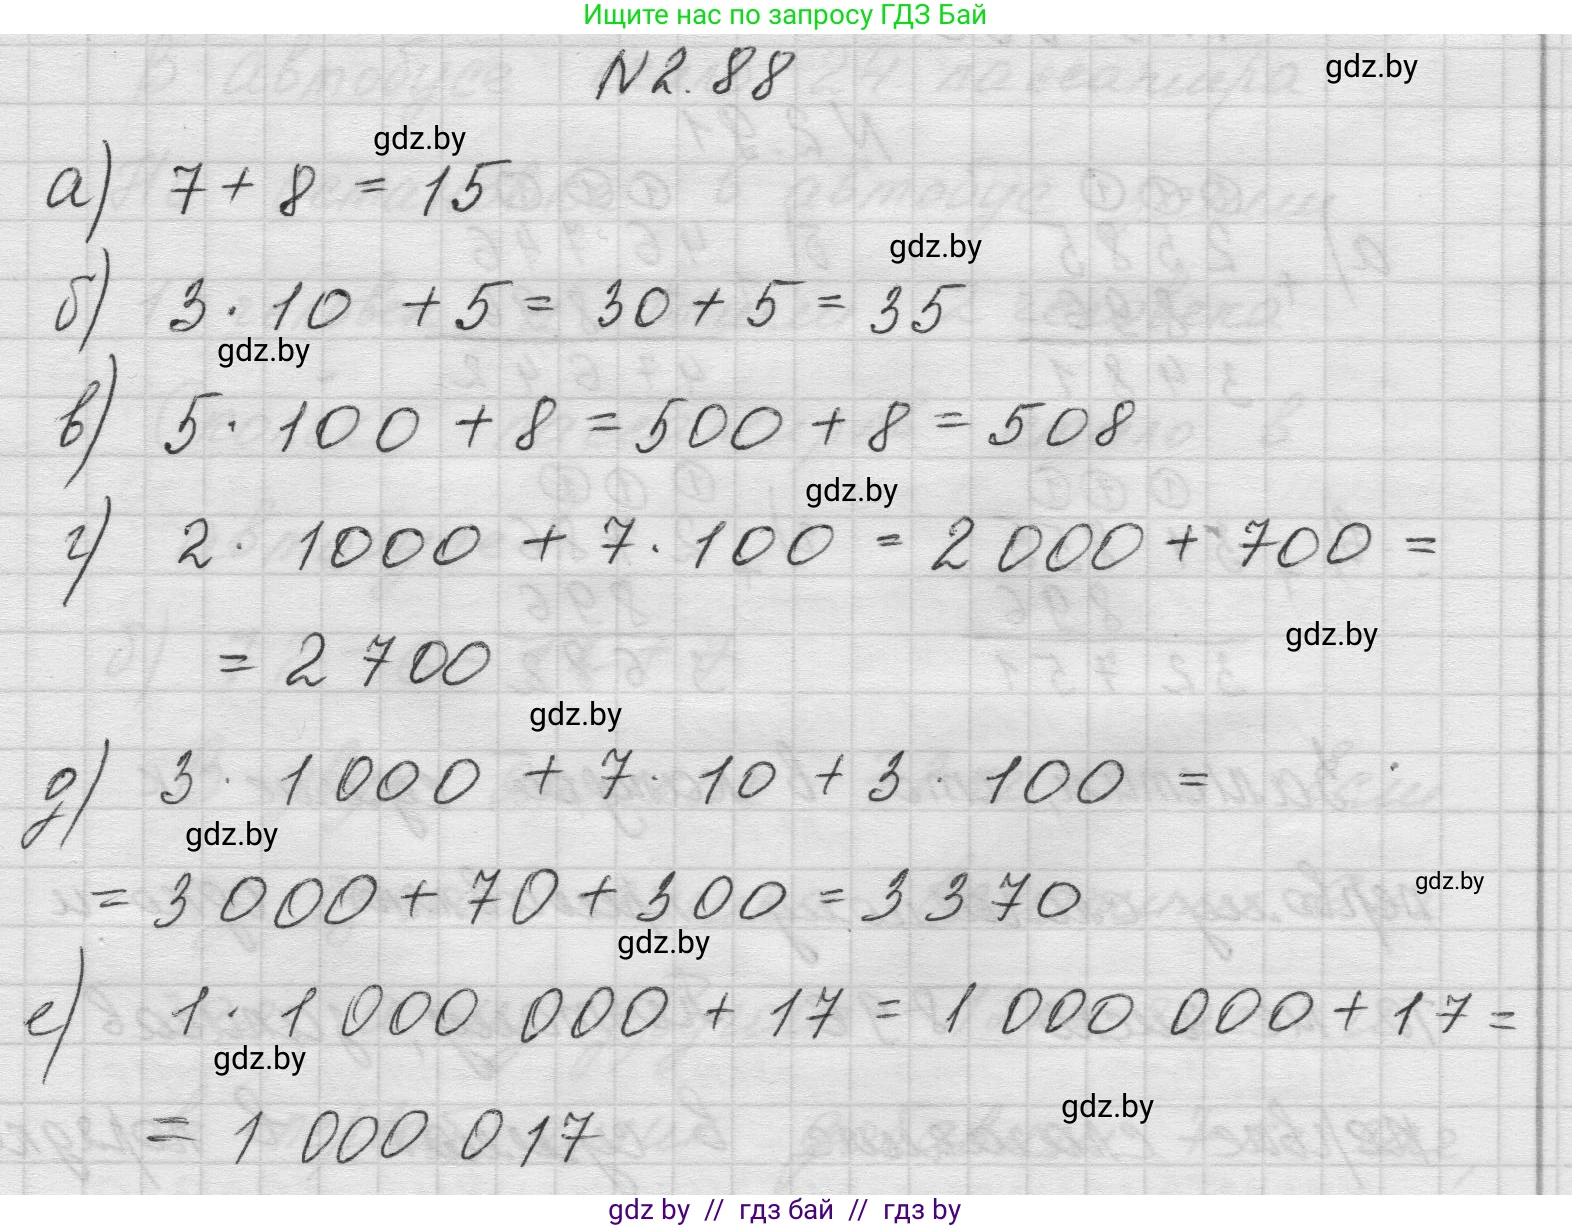 Ищите нас по запросу ГДЗ Бай
N 2.88
gdz.by
gdz.by
а) 7 + 8 = 15
gdz.by
б) 3 · 10 + 5 = 30 + 5 = 35
gdz.by
в) 5 · 100 + 8 = 500 + 8 = 508
gdz.by
г) 2 · 1000 + 7 · 100 = 2 000 + 700 =
gdz.by
= 2 700
gdz.by
д) 3 · 1 000 + 7 · 10 + 3 · 100 =
gdz.by
= 3 000 + 70 + 300 = 3 370
gdz.by
gdz.by
е) 1 · 1 000 000 + 17 = 1 000 000 + 17 =
gdz.by
gdz.by
= 1 000 017
gdz by // гдз бай // гдз by